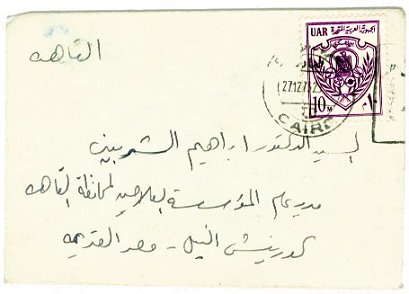 القاهرة
UAR الجمهورية العربية المتحدة
10 M ١٠
27.12.75
CAIRO
السيد الدكتور ابراهيم الشربيني
مدير عام المؤسسة العلاجية لمحافظة القاهرة
كورنيش النيل - مصر القديمة